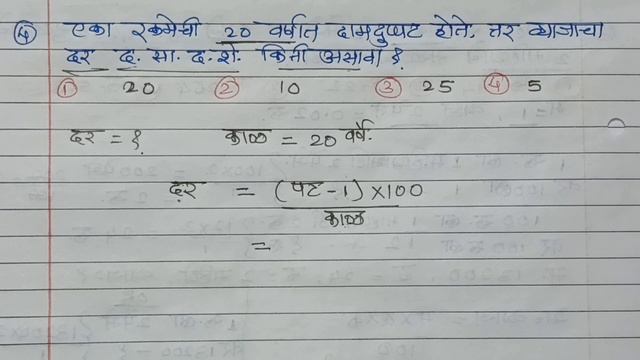 ५ एका रकमेची 20 वर्षात दामदुप्पट होते. तर व्याजाचा
दर द. सा. द. शे. किती असावा ?
① 20 ② 10 ③ 25 ④ 5
दर = ? काळ = 20 वर्षे.
दर = (पट - 1) × 100
काळ
=